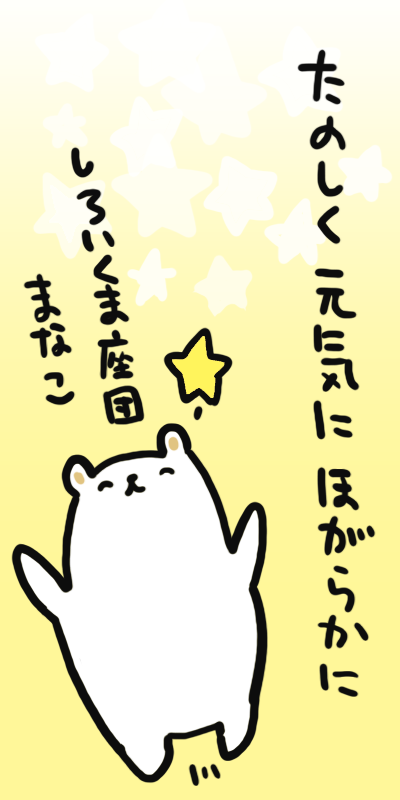 たのしく 元気に ほがらかに
しろいくま座団
まなこ